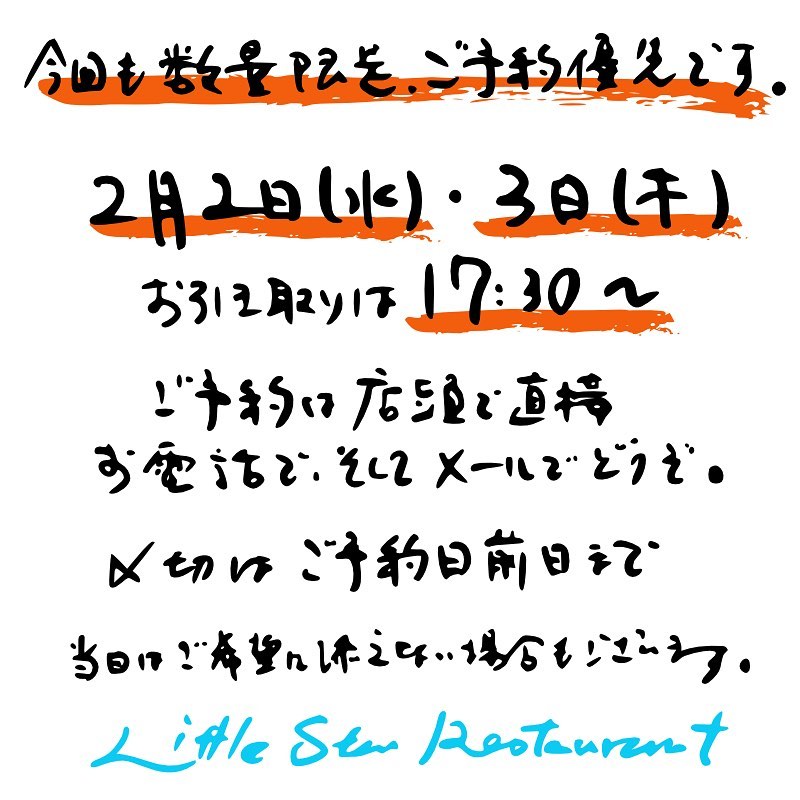 今回も数量限定、ご予約優先です。
2月2日(水)・3日(木)
お引き取りは 17:30〜
ご予約は店頭で直接
お電話で、そしてメールでどうぞ。
〆切はご予約日前日まで
当日はご希望に添えない場合もございます。
Little Star Restaurant